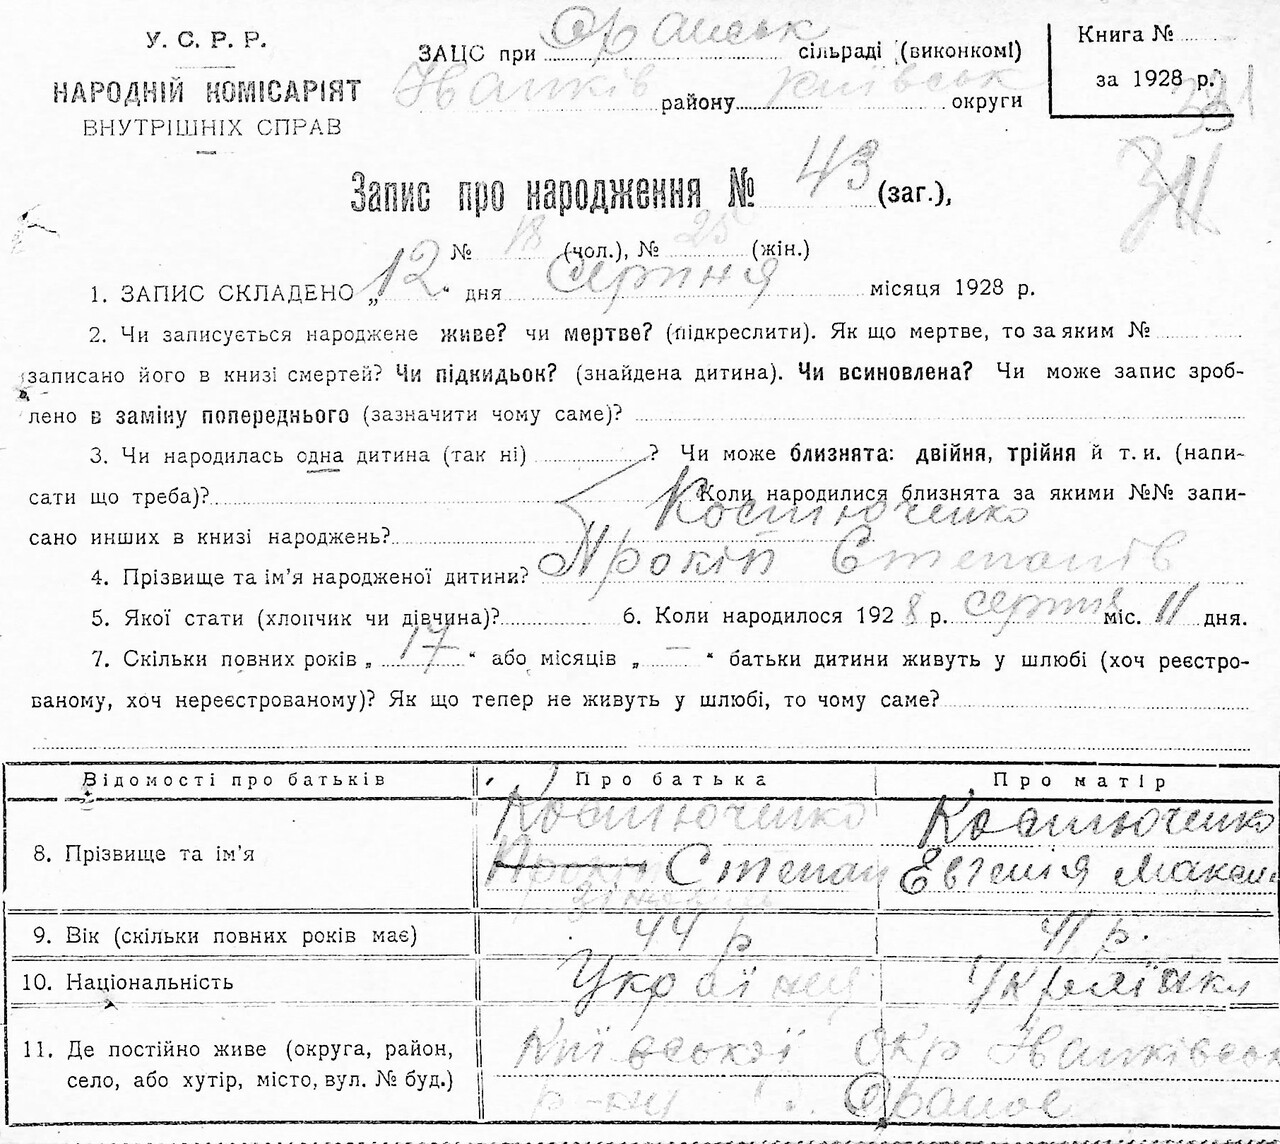 У. С. Р. Р.
НАРОДНІЙ КОМІСАРІЯТ
ВНУТРІШНІХ СПРАВ
ЗАЦС при Оранськ сільраді (виконкомі)
Іванків району Київськ округи
Книга №
за 1928 р.
331
311
Запис про народження № 43 (заг.),
№ 18 (чол.), № 25 (жін.)
1. ЗАПИС СКЛАДЕНО „12" дня серпня місяця 1928 р.
2. Чи записується народжене живе? чи мертве? (підкреслити). Як що мертве, то за яким №
записано його в книзі смертей? Чи підкидьок? (знайдена дитина). Чи всиновлена? Чи може запис зроб-
лено в заміну попереднього (зазначити чому саме)?
3. Чи народилась одна дитина (так ні) ? Чи може близнята: двійня, трійня й т. и. (напи-
сати що треба)? Коли народилися близнята за якими №№ запи-
сано инших в книзі народжень? Костюченко
4. Прізвище та ім'я народженої дитини? Прокіп Степанів
5. Якої стати (хлопчик чи дівчина)? 6. Коли народилося 1928 р. серпня міс. 11 дня.
7. Скільки повних років „17" або місяців „—" батьки дитини живуть у шлюбі (хоч реєстро-
ваному, хоч нереєстрованому)? Як що тепер не живуть у шлюбі, то чому саме?
Відомості про батьків Про батька Про матір
Костюченко Костюченко
8. Прізвище та ім'я Прокіп Степан Евгенія Максим
9. Вік (скільки повних років має) 44 р 41 р.
10. Національність Українец Українка
11. Де постійно живе (округа, район, Київської Окр Іванківськ
село, або хутір, місто, вул. № буд.) р-ну с. Оране